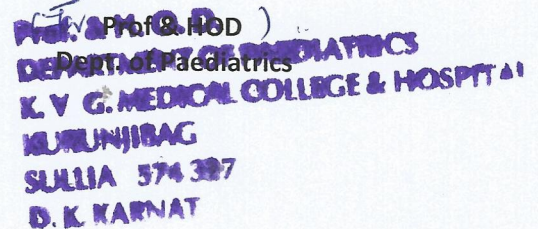 Prof & HOD
Dept. of Paediatrics
Prof. & H.O.D.
DEPARTMENT OF PAEDIATRICS
K. V G. MEDICAL COLLEGE & HOSPITAL
KURUNJIBAG
SULLIA 574 327
D. K. KARNAT